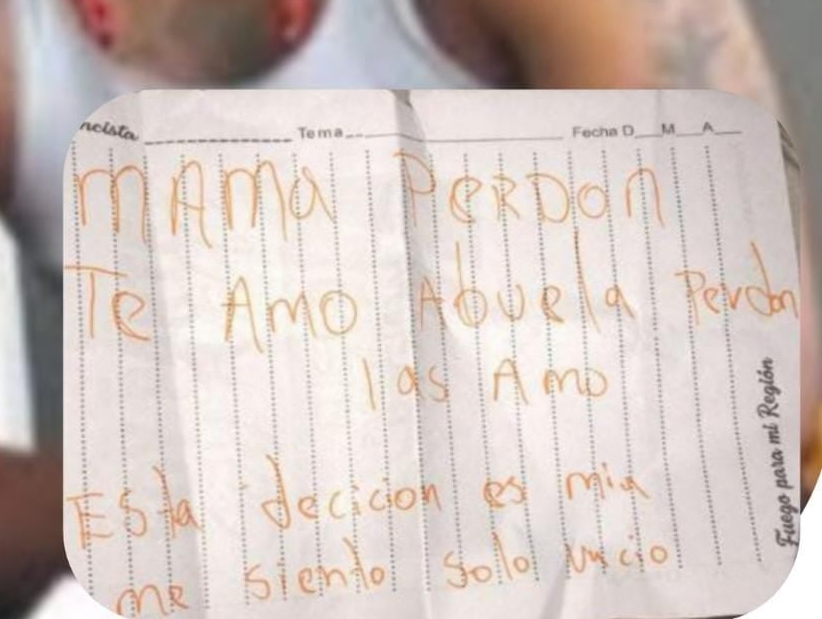 ncista Tema Fecha D M A
MAMa PERDON
Te Amo Abuela Perdon
las Amo
Esta decicion es mia
me siento solo vacio
Fuego para mi Región